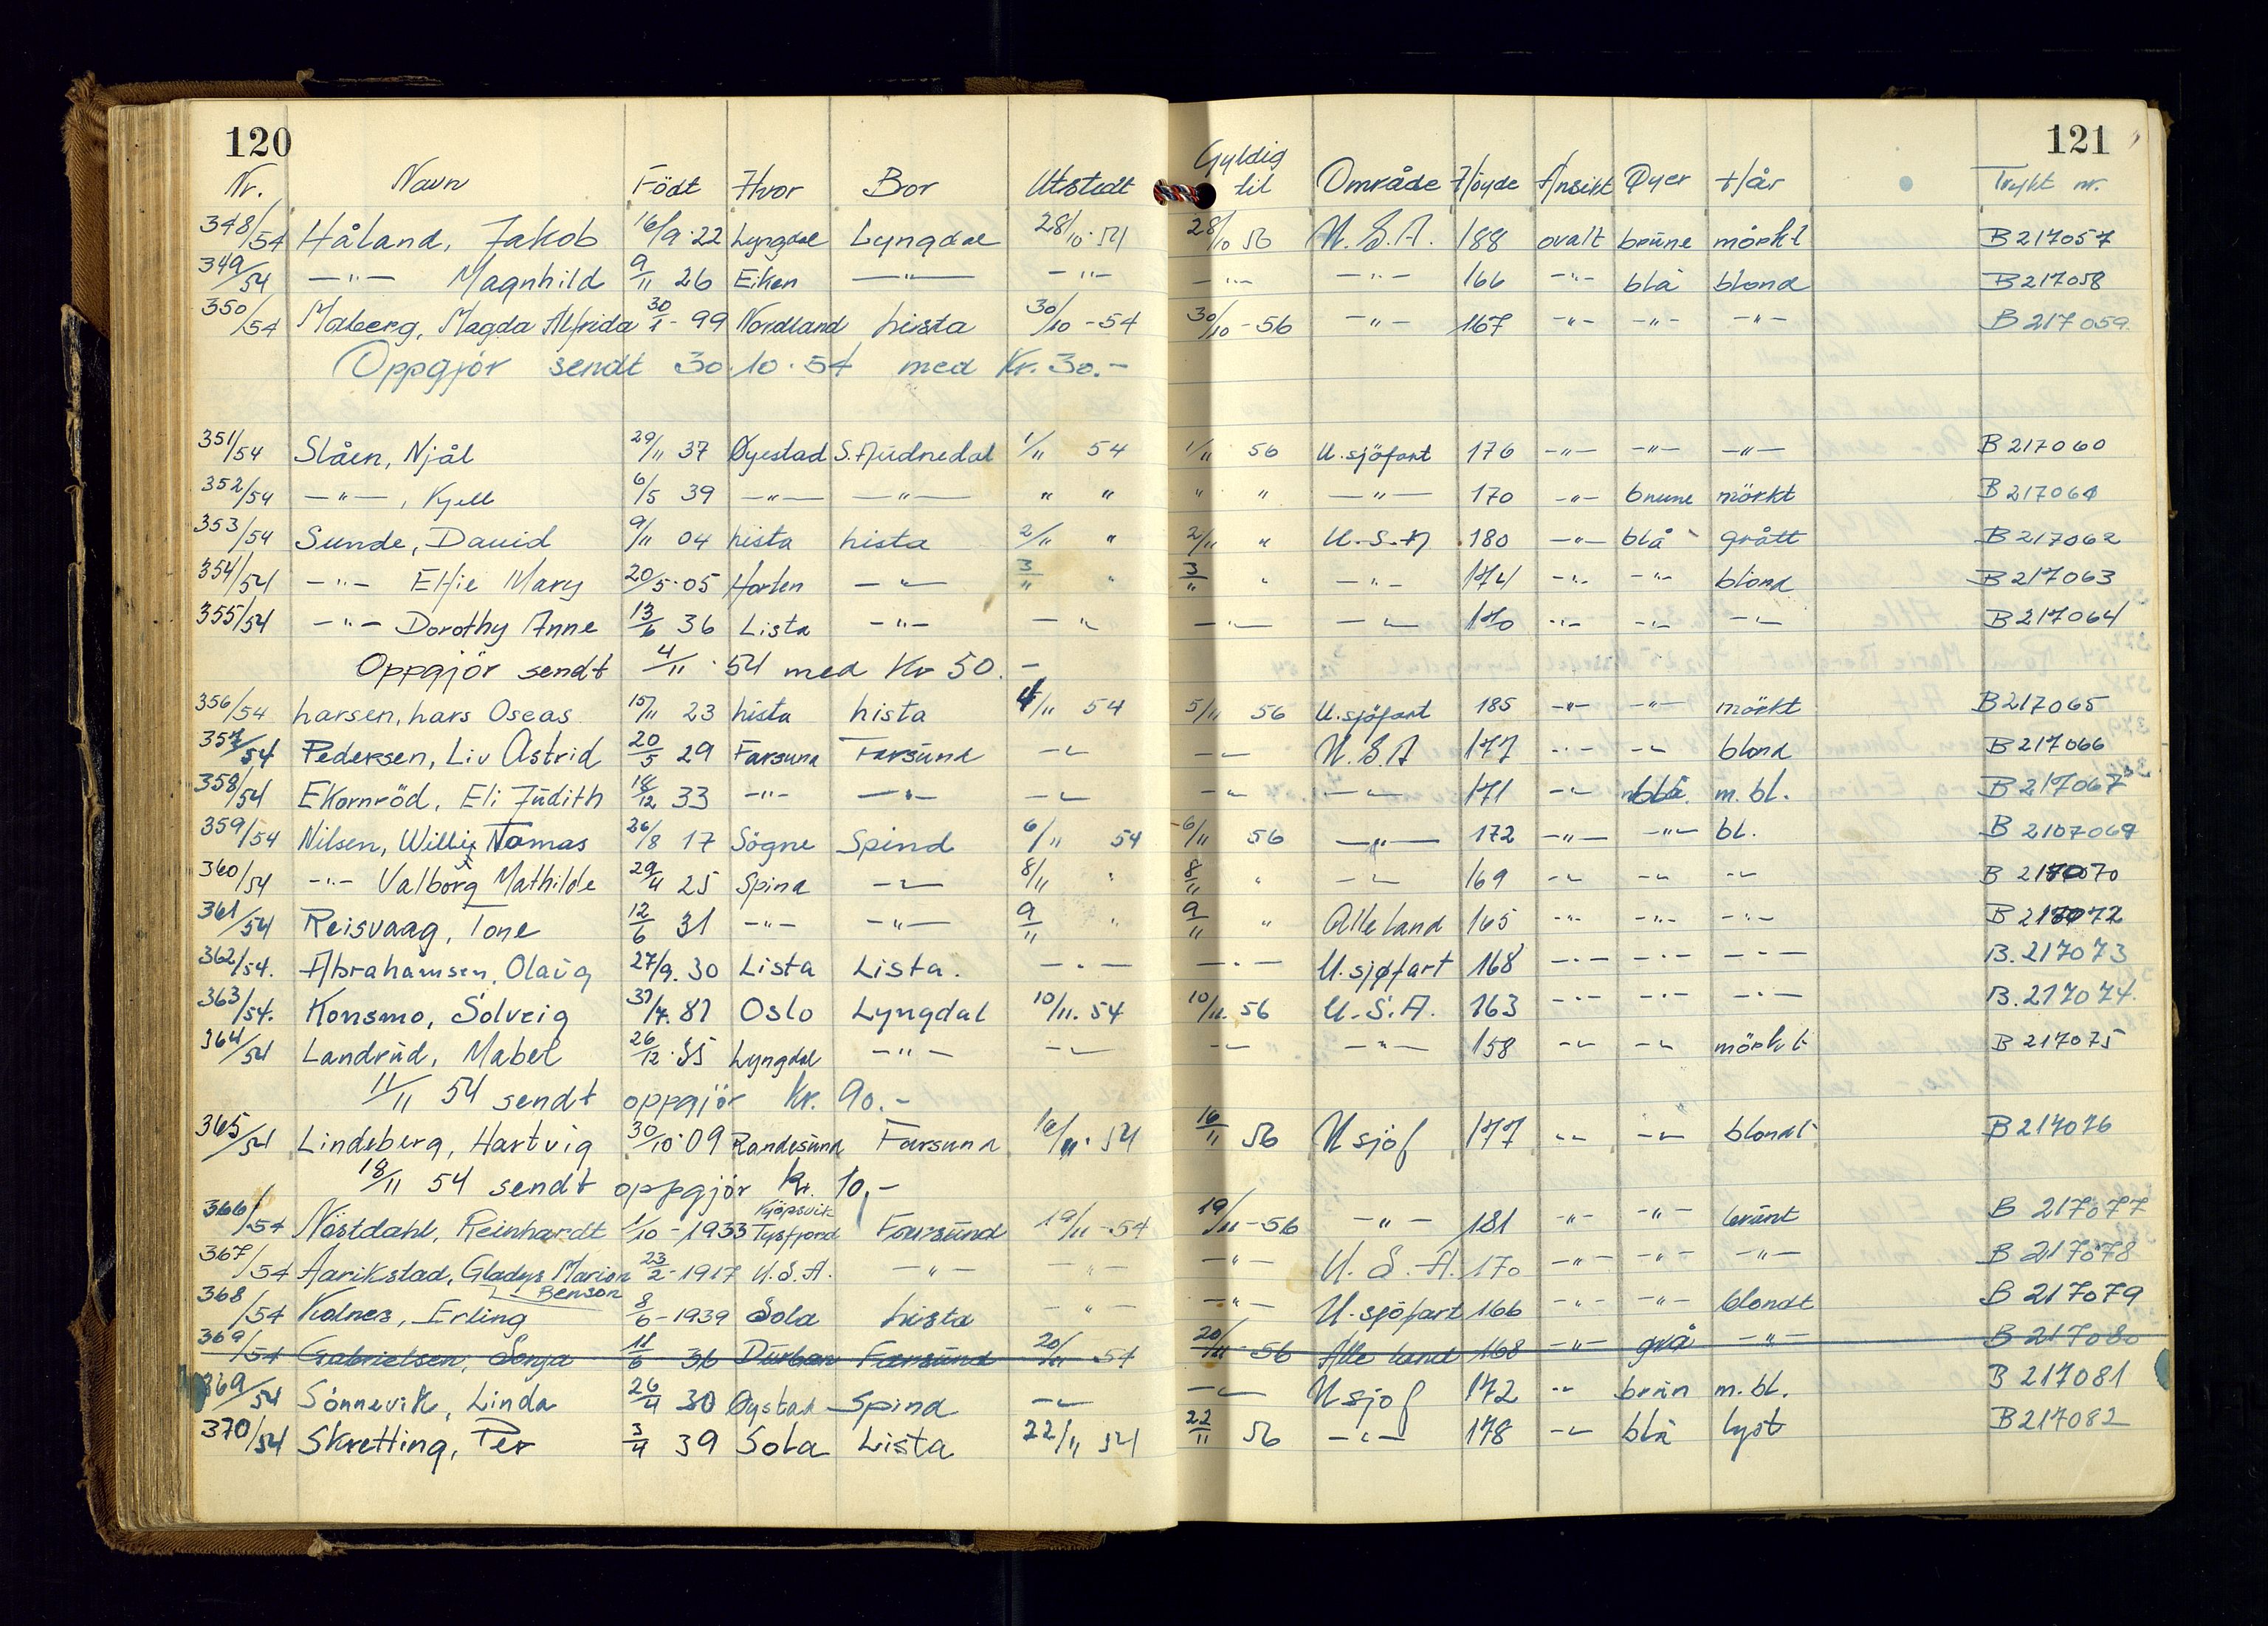 120
121
Nr. Navn Födt Hvor Bor Utstedt Gyldig til Område Höyde Ansikt Øyer Hår Trykt nr.
348/54 Håland, Jakob 16/9·22 Lyngdal Lyngdal 28/10·54 28/10 56 U.S.A. 188 ovalt brune mörkt B 217057
349/54 —"— Magnhild 9/11 26 Eiken —"— —"— —"— —"— 166 —"— blå blond B 217058
350/54 Malberg, Magda Alfrida 30/1-99 Nordland Lista 30/10-54 30/10-56 —"— 167 —"— —"— —"— B 217059
Oppgjör sendt 30.10.54 med Kr. 30.-
351/54 Slåen, Njål 29/11 37 Øyestad S.Audnedal 1/11 54 1/11 56 U.sjöfart 176 —"— —"— —"— B 217060
352/54 —"—, Kjell 6/5 39 —"— —"— " " " " —"— 170 —"— brune mörkt B 217061
353/54 Sunde, David 9/11 04 Lista Lista 2/11 " 2/11 " U.S.A 180 —"— blå grått B 217062
354/54 —"— Effie Mary 20/5·05 Horten —"— 3/11 " 3/11 " —"— 174 —"— —"— blond B 217063
355/54 —"— Dorothy Anne 13/6 36 Lista —"— —"— —"— —"— 170 —"— —"— —"— B 217064
Oppgjör sendt 4/11·54 med Kr 50.-
356/54 Larsen, Lars Oseas 15/11 23 Lista Lista 4/11 54 5/11 56 U.sjöfart 185 —"— —"— mörkt B 217065
357/54 Pedersen, Liv Astrid 20/5 29 Farsund Farsund —"— —"— U.S.A 177 —"— —"— blond B 217066
358/54 Ekornröd, Eli Judith 18/12 33 —"— —"— —"— —"— —"— 171 —"— blå m. bl. B 217067
359/54 Nilsen, Willy Tomas 26/8 17 Sögne Spind 6/11 54 6/11 56 —"— 172 —"— —"— bl. B 2107069
360/54 —"— Valborg Mathilde 29/4 25 Spind —"— 8/11 " 8/11 " —"— 169 —"— —"— —"— B 217070
361/54 Reisvaag, Tone 12/6 31 —"— —"— 9/11 " 9/11 " Alle land 165 —"— —"— —"— B 217072
362/54. Abrahamsen, Olaug 27/9.30 Lista Lista. —"— —"— U.sjøfart 168 —"— —"— —"— B.217073
363/54. Konsmo, Solveig 31/7.81 Oslo Lyngdal 10/11.54 10/11.56 U.S.A. 163 —"— —"— —"— B.217074.
364/54 Landrud, Mabel 26/12·35 Lyngdal —"— —"— —"— —"— 158 —"— —"— mörkt B 217075
11/11 54 sendt oppgjör Kr. 90.-
365/54 Lindeberg, Hartvig 30/10·09 Randesund Farsund 16/11·54 16/11 56 U sjöf 177 —"— —"— blondt B 217076
18/11 54 sendt oppgjör kr. 10,-
366/54 Nöstdahl, Reinhardt 1/10-1933 Kjöpsvik Tysfjord Farsund 19/11-54 19/11-56 —"— 181 —"— —"— brünt B 217077
367/54 Aarikstad, Gladys Marion Benson 23/2-1917 U.S.A. —"— —"— —"— U.S.A. 170 —"— —"— —"— B 217078
368/54 Kolnes, Erling 8/6-1939 Sola Lista —"— —"— U.sjöfart 166 —"— —"— blondt B 217079
369/54 Gabrielsen, Sonja 11/6 36 Durban Farsund 20/11-54 20/11-56 Alle land 168 —"— grå —"— B 217080
369/54 Sönnevik, Linda 26/4 30 Øystad Spind —"— —"— U sjöf 172 —"— brün m. bl. B 217081
370/54 Skretting, Per 3/4 39 Sola Lista 22/11 54 22/11 56 —"— 178 —"— blå lyst B 217082